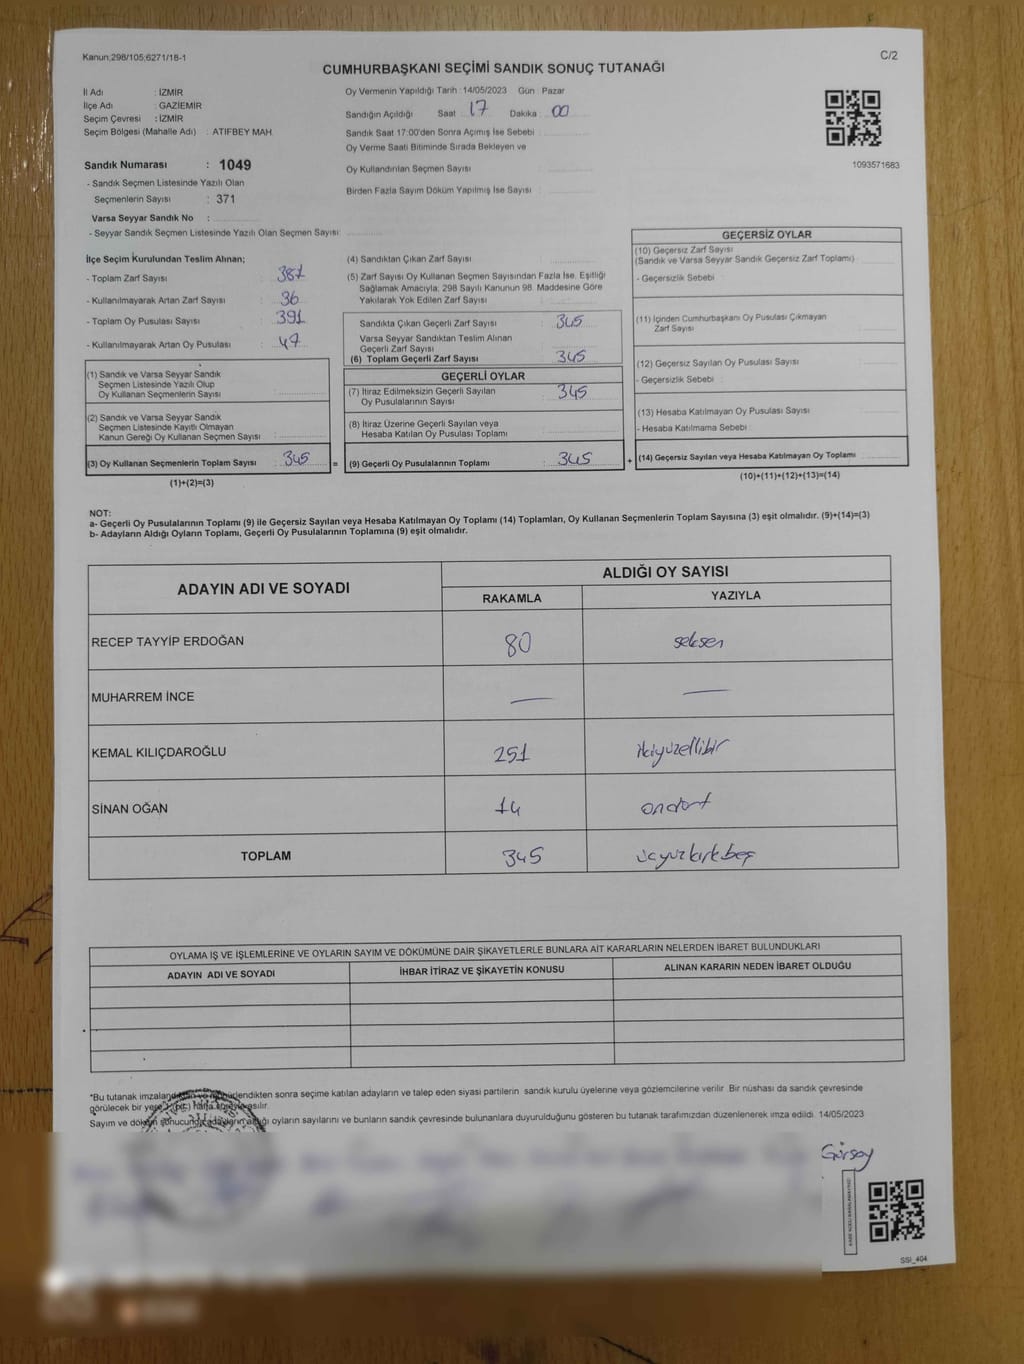 Kanun;298/105;6271/18-1
C/2
CUMHURBAŞKANI SEÇİMİ SANDIK SONUÇ TUTANAĞI
İl Adı : İZMİR
İlçe Adı : GAZİEMİR
Seçim Çevresi : İZMİR
Seçim Bölgesi (Mahalle Adı) : ATIFBEY MAH.
Sandık Numarası : 1049
- Sandık Seçmen Listesinde Yazılı Olan
Seçmenlerin Sayısı : 371
Varsa Seyyar Sandık No :
- Seyyar Sandık Seçmen Listesinde Yazılı Olan Seçmen Sayısı:
Oy Vermenin Yapıldığı Tarih : 14/05/2023 Gün Pazar
Sandığın Açıldığı Saat : 17 Dakika : 00
Sandık Saat 17:00'den Sonra Açımış İse Sebebi :
Oy Verme Saati Bitiminde Sırada Bekleyen ve
Oy Kullandırılan Seçmen Sayısı :
Birden Fazla Sayım Döküm Yapılmış İse Sayısı :
1093571683
İlçe Seçim Kurulundan Teslim Alınan;
- Toplam Zarf Sayısı : 381
- Kullanılmayarak Artan Zarf Sayısı : 36
- Toplam Oy Pusulası Sayısı : 391
- Kullanılmayarak Artan Oy Pusulası : 47
(1) Sandık ve Varsa Seyyar Sandık
Seçmen Listesinde Yazılı Olup
Oy Kullanan Seçmenlerin Sayısı :
(2) Sandık ve Varsa Seyyar Sandık
Seçmen Listesinde Kayıtlı Olmayan
Kanun Gereği Oy Kullanan Seçmen Sayısı :
(3) Oy Kullanan Seçmenlerin Toplam Sayısı : 345
(1)+(2)=(3)
=
(4) Sandıktan Çıkan Zarf Sayısı :
(5) Zarf Sayısı Oy Kullanan Seçmen Sayısından Fazla İse, Eşitliği
Sağlamak Amacıyla; 298 Sayılı Kanunun 98. Maddesine Göre
Yakılarak Yok Edilen Zarf Sayısı :
Sandıkta Çıkan Geçerli Zarf Sayısı : 345
Varsa Seyyar Sandıktan Teslim Alınan
Geçerli Zarf Sayısı :
(6) Toplam Geçerli Zarf Sayısı : 345
GEÇERLİ OYLAR
(7) İtiraz Edilmeksizin Geçerli Sayılan
Oy Pusulalarının Sayısı : 345
(8) İtiraz Üzerine Geçerli Sayılan veya
Hesaba Katılan Oy Pusulası Toplamı :
(9) Geçerli Oy Pusulalarının Toplamı : 345
+
GEÇERSİZ OYLAR
(10) Geçersiz Zarf Sayısı
(Sandık ve Varsa Seyyar Sandık Geçersiz Zarf Toplamı) :
- Geçersizlik Sebebi :
(11) İçinden Cumhurbaşkanı Oy Pusulası Çıkmayan
Zarf Sayısı :
(12) Geçersiz Sayılan Oy Pusulası Sayısı :
- Geçersizlik Sebebi :
(13) Hesaba Katılmayan Oy Pusulası Sayısı :
- Hesaba Katılmama Sebebi :
(14) Geçersiz Sayılan veya Hesaba Katılmayan Oy Toplamı :
(10)+(11)+(12)+(13)=(14)
NOT:
a- Geçerli Oy Pusulalarının Toplamı (9) ile Geçersiz Sayılan veya Hesaba Katılmayan Oy Toplamı (14) Toplamları, Oy Kullanan Seçmenlerin Toplam Sayısına (3) eşit olmalıdır. (9)+(14)=(3)
b- Adayların Aldığı Oyların Toplamı, Geçerli Oy Pusulalarının Toplamına (9) eşit olmalıdır.
ADAYIN ADI VE SOYADI ALDIĞI OY SAYISI
RAKAMLA YAZIYLA
RECEP TAYYİP ERDOĞAN 80 seksen
MUHARREM İNCE — —
KEMAL KILIÇDAROĞLU 251 ikiyüzellibir
SİNAN OĞAN 14 ondört
TOPLAM 345 üçyüzkırkbeş
OYLAMA İŞ VE İŞLEMLERİNE VE OYLARIN SAYIM VE DÖKÜMÜNE DAİR ŞİKAYETLERLE BUNLARA AİT KARARLARIN NELERDEN İBARET BULUNDUKLARI
ADAYIN ADI VE SOYADI İHBAR İTİRAZ VE ŞİKAYETİN KONUSU ALINAN KARARIN NEDEN İBARET OLDUĞU
*Bu tutanak imzalandıktan ve mühürlendikten sonra seçime katılan adayların ve talep eden siyasi partilerin sandık kurulu üyelerine veya gözlemcilerine verilir. Bir nüshası da sandık çevresinde
görülecek bir yere
Sayım ve döküm sonucunda adayların aldığı oyların sayılarını ve bunların sandık çevresinde bulunanlara duyurulduğunu gösteren bu tutanak tarafımızdan düzenlenerek imza edildi. 14/05/2023
Gürsoy
SSİ_404